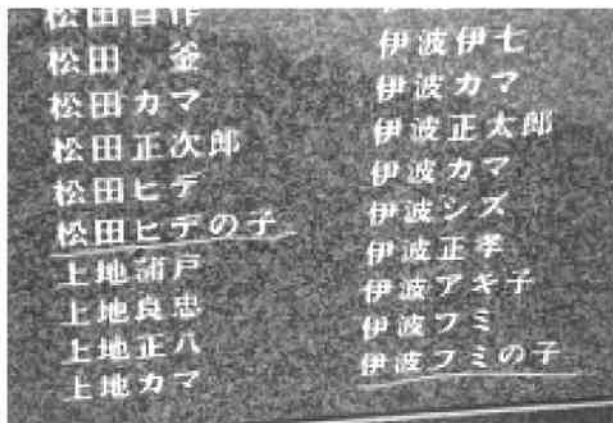 松田自作
松田 釜
松田カマ
松田正次郎
松田ヒデ
松田ヒデの子
上地蒲戸
上地良忠
上地正八
上地カマ
伊波伊七
伊波カマ
伊波正太郎
伊波カマ
伊波シズ
伊波正孝
伊波アキ子
伊波フミ
伊波フミの子